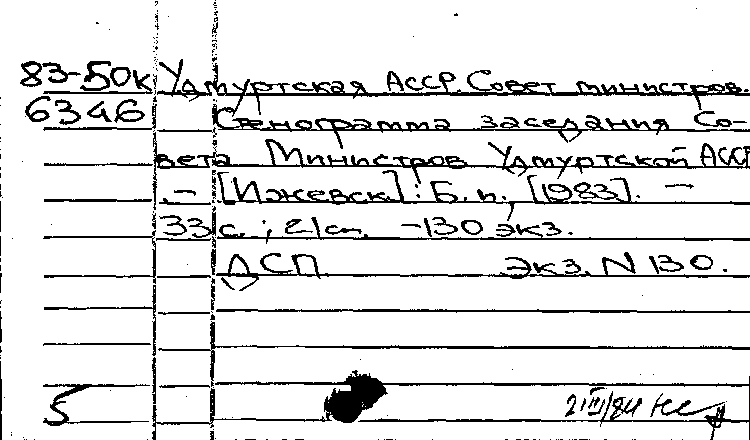 83-50к Удмуртская АССР. Совет министров.
6346 Стенограмма заседания Со-
вета Министров Удмуртской АССР
. — [Ижевск] : Б. и., [1983]. —
33 с. ; 21 см. — 130 экз.
ДСП Экз. N 130.
5 2/III/84